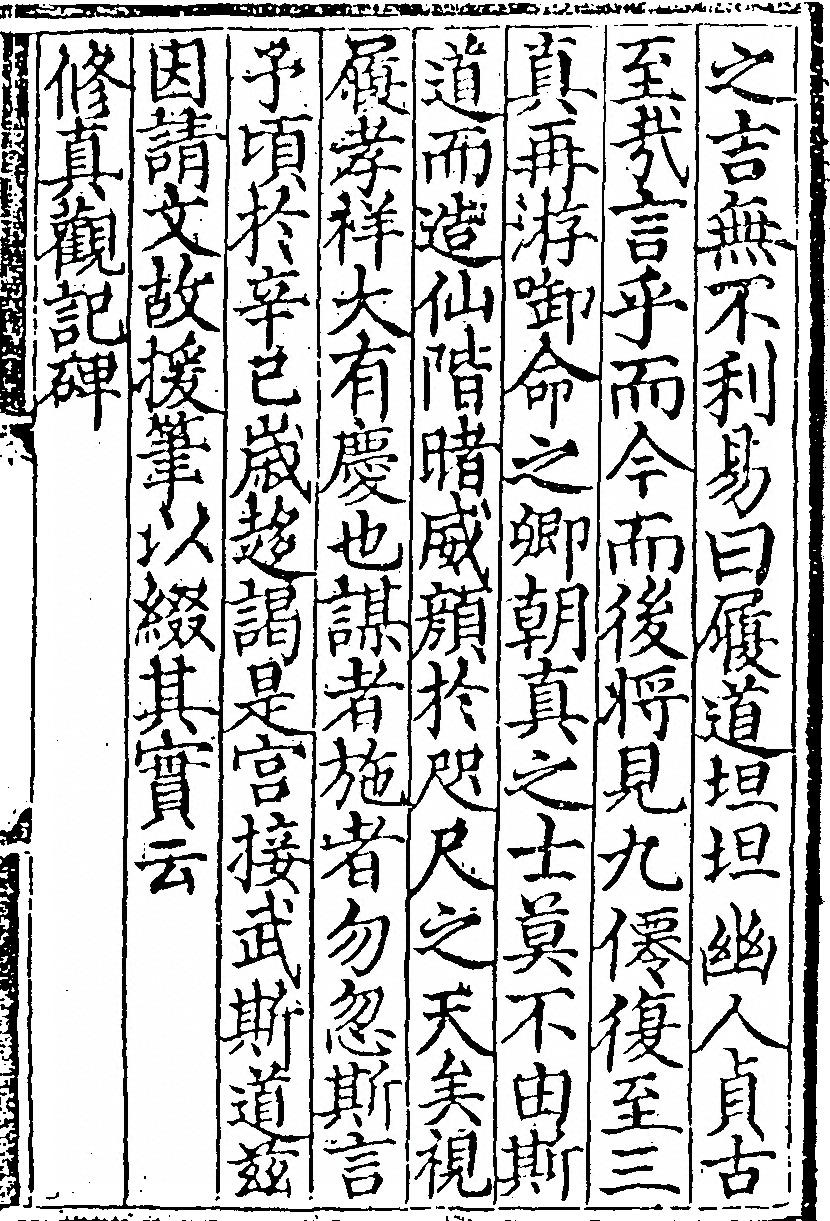 之吉無不利易曰履道坦坦幽人貞古
至㢤言乎而今而後將見九僊復至三
真再游啣命之卿朝真之士莫不由斯
道而造仙階睹威顔於咫尺之天矣視
履孝祥大有慶也謀者施者勿忽斯言
予頃於辛巳歲趍謁是宮接武斯道茲
因請文故援筆以綴其實云
修真觀記碑